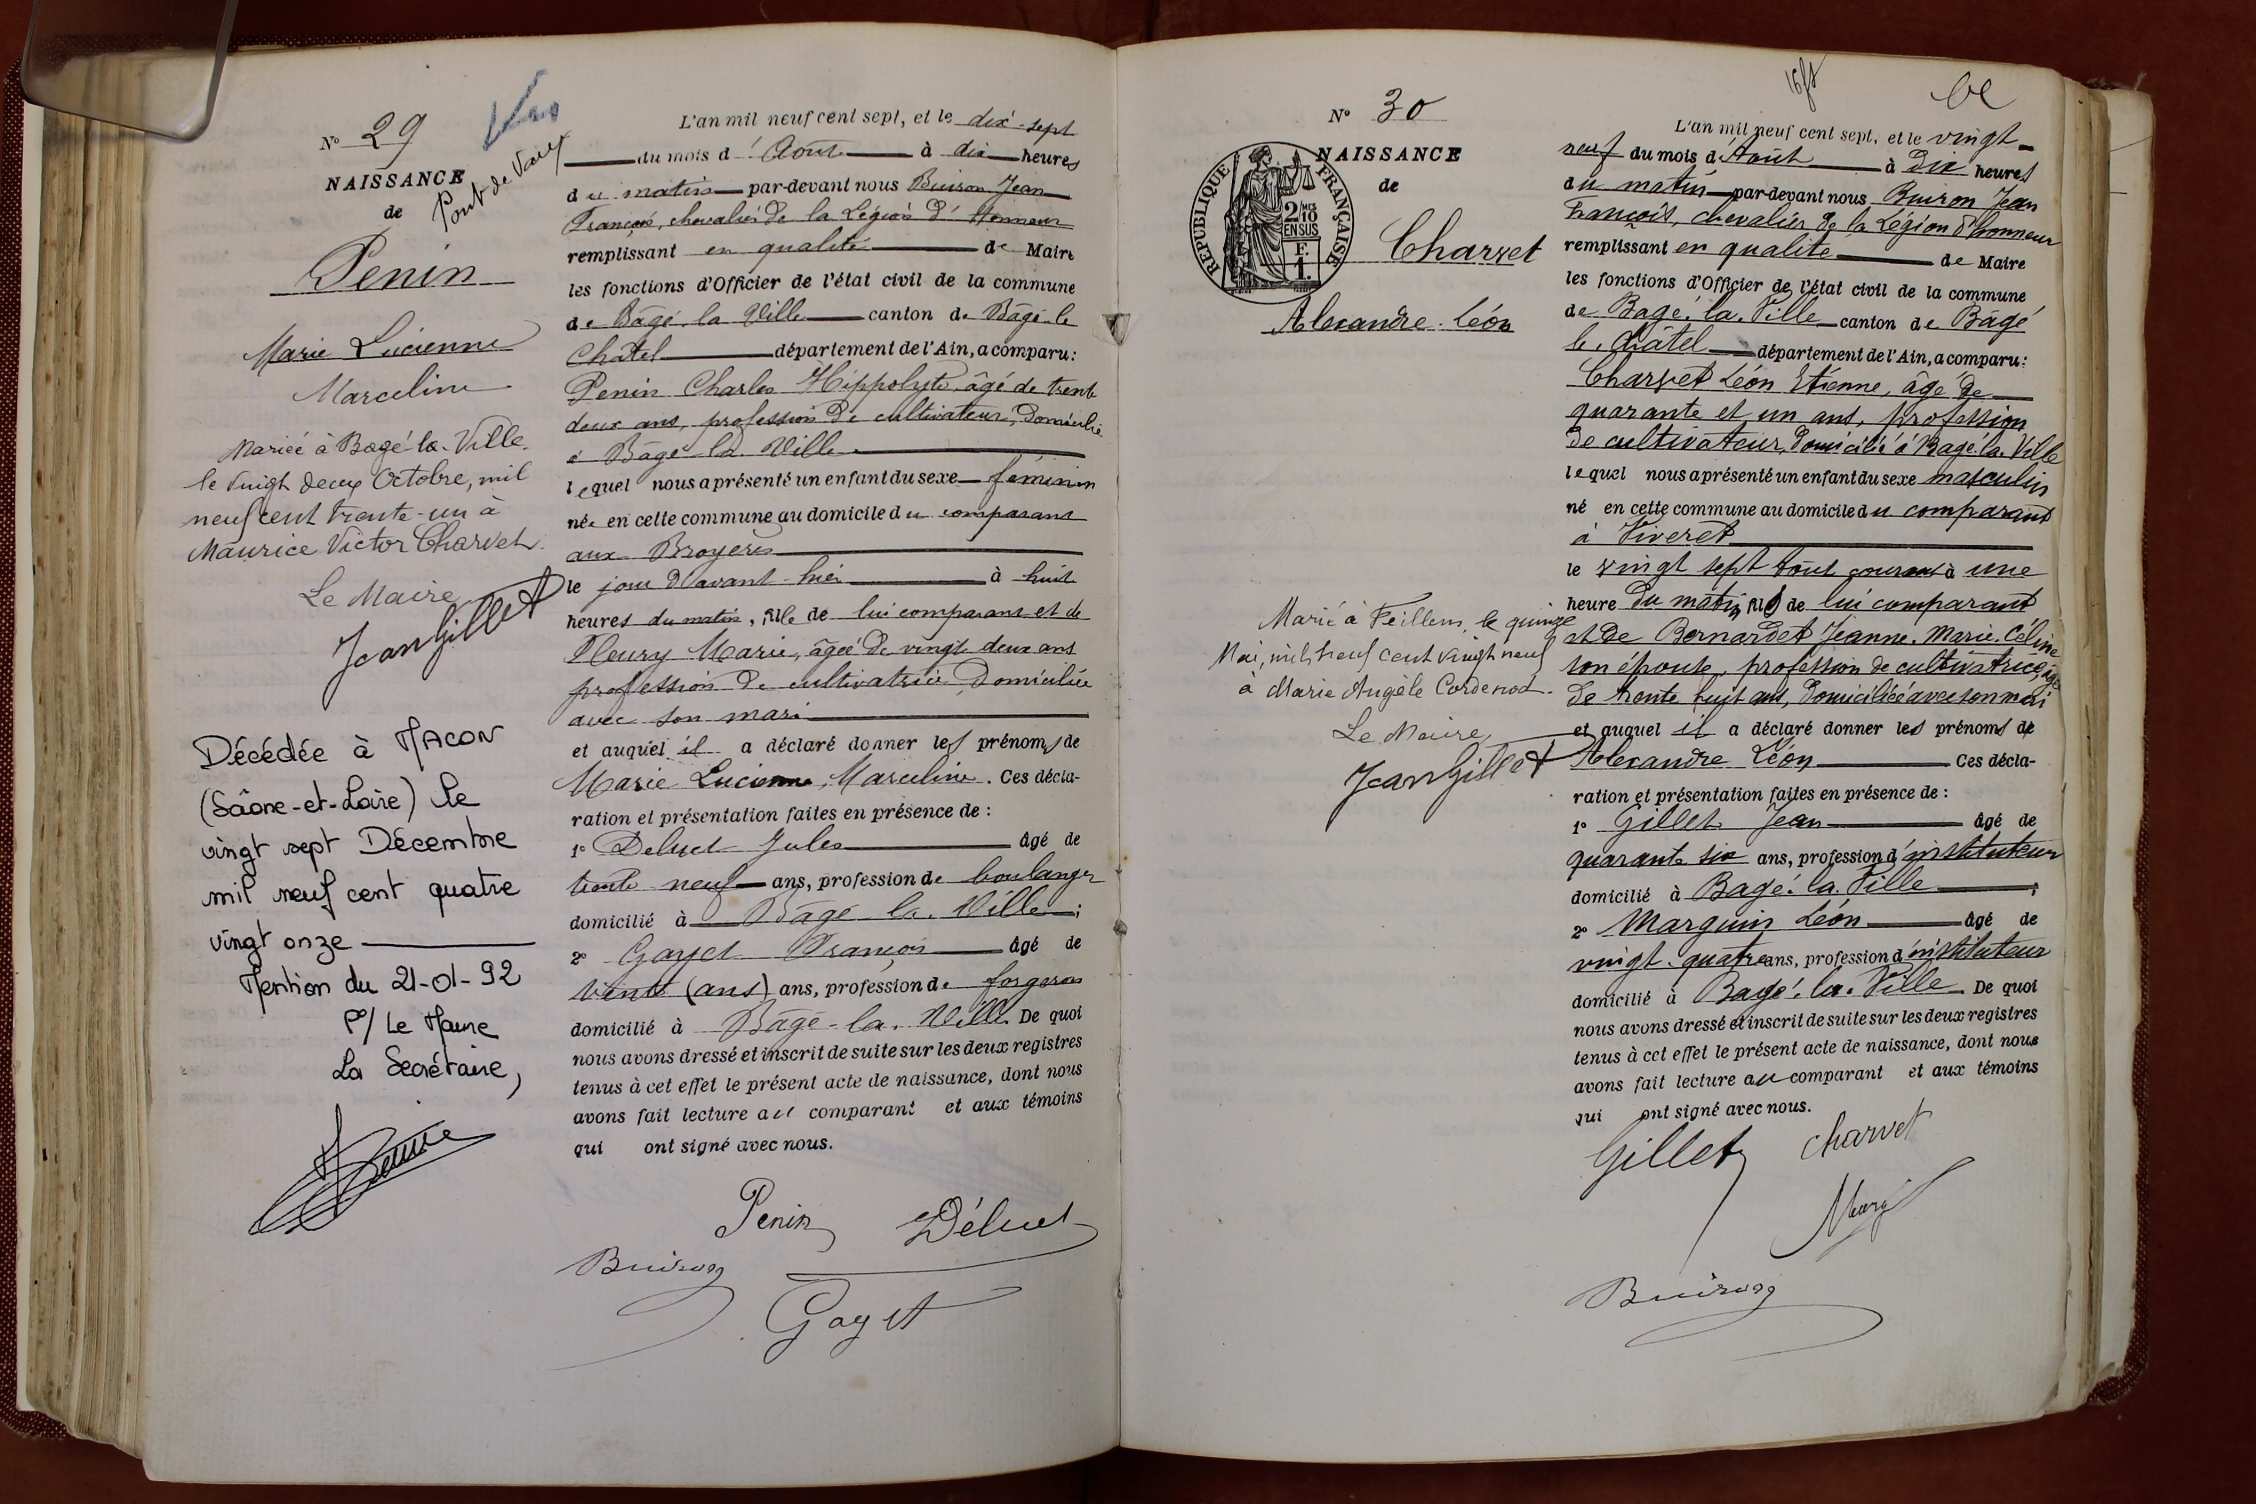 Nº 29
NAISSANCE
de
Pont-de-Vaux
Penin
Marie Lucienne
Marceline
Mariée à Bagé-la-Ville
le vingt deux Octobre, mil
neuf cent trente-un à
Maurice Victor Charvet.
Le Maire
Jean Gillet
Décédée à MACON
(Saône-et-Loire) le
vingt sept Décembre
mil neuf cent quatre
vingt onze
Mention du 21-01-92
Pº/ Le Maire
La Secrétaire,
L'an mil neuf cent sept, et le dix-sept
du mois d'Août à dix heures
du matin par-devant nous Buiron Jean
François, chevalier de la Légion d'Honneur
remplissant en qualité de Maire
les fonctions d'Officier de l'état civil de la commune
de Bâgé-la-Ville canton de Bâgé-le
Châtel département de l'Ain, a comparu:
Penin Charles Hippolyte, âgé de trente
deux ans, profession de cultivateur, domicilié
à Bâgé-la-Ville
lequel nous a présenté un enfant du sexe féminin
née en cette commune au domicile du comparant
aux Broyères
le jour d'avant-hier à huit
heures du matin, fille de lui comparant et de
Fleury Marie, âgée de vingt deux ans
profession de cultivatrice, domiciliée
avec son mari
et auquel il a déclaré donner les prénoms de
Marie Lucienne, Marceline. Ces décla-
ration et présentation faites en présence de :
1º Deluet Jules âgé de
trente neuf ans, profession de boulanger
domicilié à Bâgé-la-Ville ;
2º Gayet François âgé de
trente (ans) ans, profession de forgeron
domicilié à Bâgé-la-Ville De quoi
nous avons dressé et inscrit de suite sur les deux registres
tenus à cet effet le présent acte de naissance, dont nous
avons fait lecture au comparant et aux témoins
qui ont signé avec nous.
Penin Déluet
Buiron
Gayet
Nº 30
NAISSANCE
de
RÉPUBLIQUE FRANÇAISE
2/10 MES EN SUS
F. 1.
Charvet
Alexandre-Léon
Marié à Feillens, le quinze
Mai, mil neuf cent vingt neuf
à Marie Angèle Cordenod.
Le Maire
Jean Gillet
L'an mil neuf cent sept, et le vingt-
neuf du mois d'Août à dix heures
du matin par-devant nous Buiron Jean
François, chevalier de la Légion d'honneur
remplissant en qualité de Maire
les fonctions d'Officier de l'état civil de la commune
de Bagé-la-Ville canton de Bâgé
le-Châtel département de l'Ain, a comparu:
Charvet Léon Etienne, âgé de
quarante et un ans, profession
de cultivateur, domicilié à Bagé-la-Ville
lequel nous a présenté un enfant du sexe masculin
né en cette commune au domicile du comparant
à Viveret
le vingt sept Août courant à une
heure du matin, fils de lui comparant
et de Bernardet Jeanne-Marie-Céline
son épouse, profession de cultivatrice, âgée
de trente huit ans, domiciliée avec son mari
et auquel il a déclaré donner les prénoms de
Alexandre Léon Ces décla-
ration et présentation faites en présence de :
1º Gillet Jean âgé de
quarante six ans, profession d'instituteur
domicilié à Bagé-la-Ville ;
2º Marguin Léon âgé de
vingt-quatre ans, profession d'instituteur
domicilié à Bagé-la-Ville De quoi
nous avons dressé et inscrit de suite sur les deux registres
tenus à cet effet le présent acte de naissance, dont nous
avons fait lecture au comparant et aux témoins
qui ont signé avec nous.
Gillet Charvet
Buiron